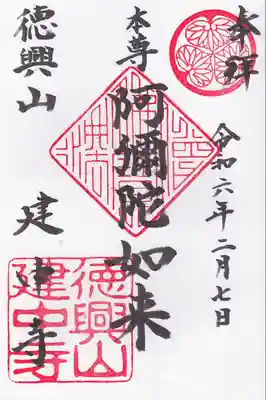 奉拝
令和六年二月七日
本尊
阿彌陀如来
徳興山
建中寺
徳興山
建中寺